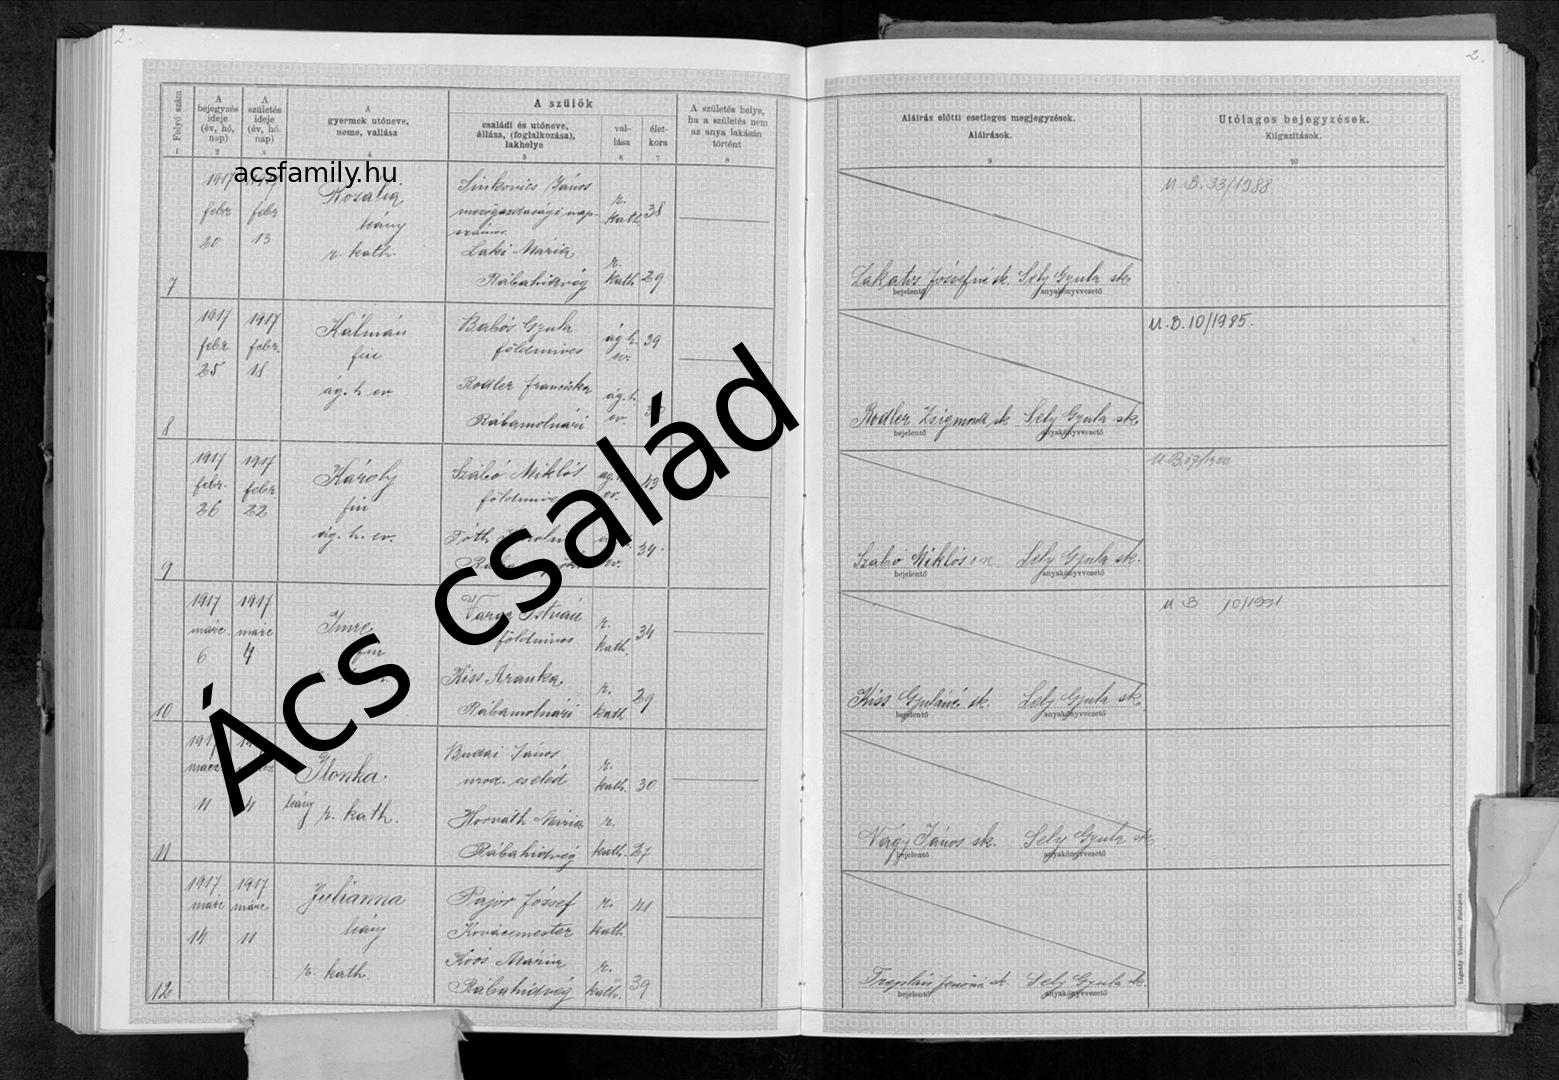 2.
2.
Folyó szám
A bejegyzés ideje (év, hó, nap)
A születés ideje (év, hó, nap)
A gyermek utóneve, neme, vallása
A szülők
családi és utóneve, állása, (foglalkozása), lakhelye
val- lása
élet- kora
A születés helye, ha a születés nem az anya lakásán történt
Aláírás előtti esetleges megjegyzések. Aláírások.
Utólagos bejegyzések. Kiigazítások.
1 2 3 4 5 6 7 8 9 10
acsfamily.hu
Ács család
7
1917 febr 20
febr 13
Rozália
leány
r. kath.
Sinkovics János
mezőgazdasági nap-
számos
Laki Mária
Rábahidvég
r. kath. 38
r. kath 29
Lakatos Józsefné sk. Sely Gyula sk.
bejelentő anyakönyvvezető
U. B. 33/1988
8
1917 febr 25
1917 febr. 18
Kálmán
fiú
ág. h. ev.
Babós Gyula
földmives
Rodler Franciska
Rábamolnári
ág. h. ev. 39
ág. h. ev.
Rodler Zsigmond sk Sely Gyula sk.
bejelentő anyakönyvvezető
U. B. 10/1985.
9
1917 febr. 26
1917 febr 22
Károly
fiú
ág. h. ev.
Szabó Miklós
Tóth
34
Szabó Miklós Sely Gyula sk.
bejelentő anyakönyvvezető
10
1917 márc. 6
1917 márc 4
Imre
Varga István
földmives
Kiss Aranka
Rábamolnári
r. kath. 34
r. kath 29
Kiss Gyuláné sk. Sely Gyula sk.
bejelentő anyakönyvvezető
U B 10/1991
11
1917 márc. 11
4
Ilonka
leány r. kath.
Budai János
urod. cseléd
Horváth Mária
Rábahidvég
r. kath. 30
r. kath. 27
Nagy János sk. Sely Gyula sk
bejelentő anyakönyvvezető
12
1917 márc 14
1917 márc 11
Julianna
leány
r. kath.
Pajor József
Kovácsmester
Koós Mária
Rábahidvég
r. kath. 41
r. kath. 39
Jenőné sk. Sely Gyula sk.
bejelentő anyakönyvvezető